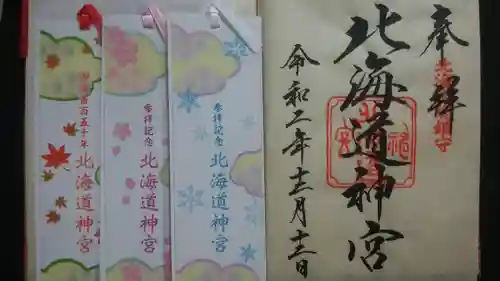 奉拝
北海道神宮
令和二年十二月十三日
参拝記念
北海道神宮
参拝記念
北海道神宮
百五十年
北海道神宮